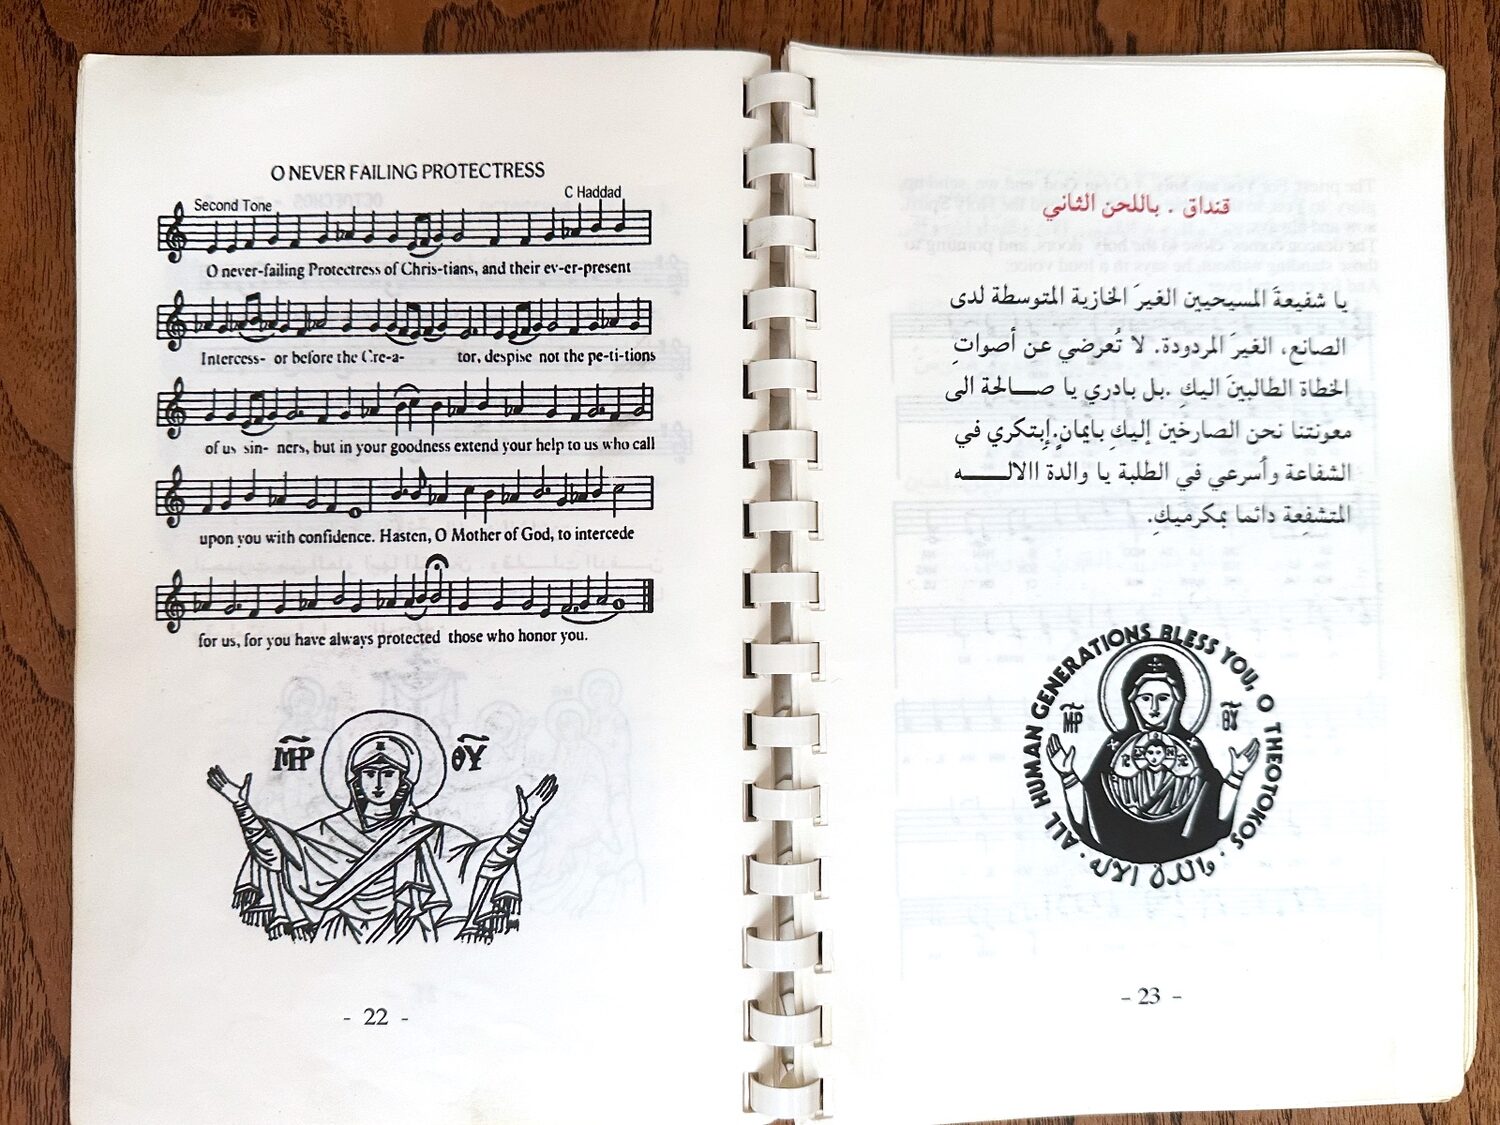 O NEVER FAILING PROTECTRESS
C Haddad
Second Tone
O never-failing Protectress of Chris-tians, and their ev-er-present
Intercess- or before the Cre-a- tor, despise not the pe-ti-tions
of us sin- ners, but in your goodness extend your help to us who call
upon you with confidence. Hasten, O Mother of God, to intercede
for us, for you have always protected those who honor you.
ΜΗΡ ΘΥ
- 22 -
قنداق . باللحن الثاني
يا شفيعةَ المسيحيين الغيرَ الخازية المتوسطة لدى
الصانع، الغيرَ المردودة. لا تُعرضي عن أصواتِ
الخطاة الطالبينَ اليكِ .بل بادري يا صـــالحة الى
معونتنا نحن الصارخين إليكِ بايمانٍ.إبتكري في
الشفاعة وأسرعي في الطلبة يا والدة االالـــــه
المتشفِعة دائما بمكرميكِ.
ALL HUMAN GENERATIONS BLESS YOU, O THEOTOKOS
والدة الإله
- 23 -